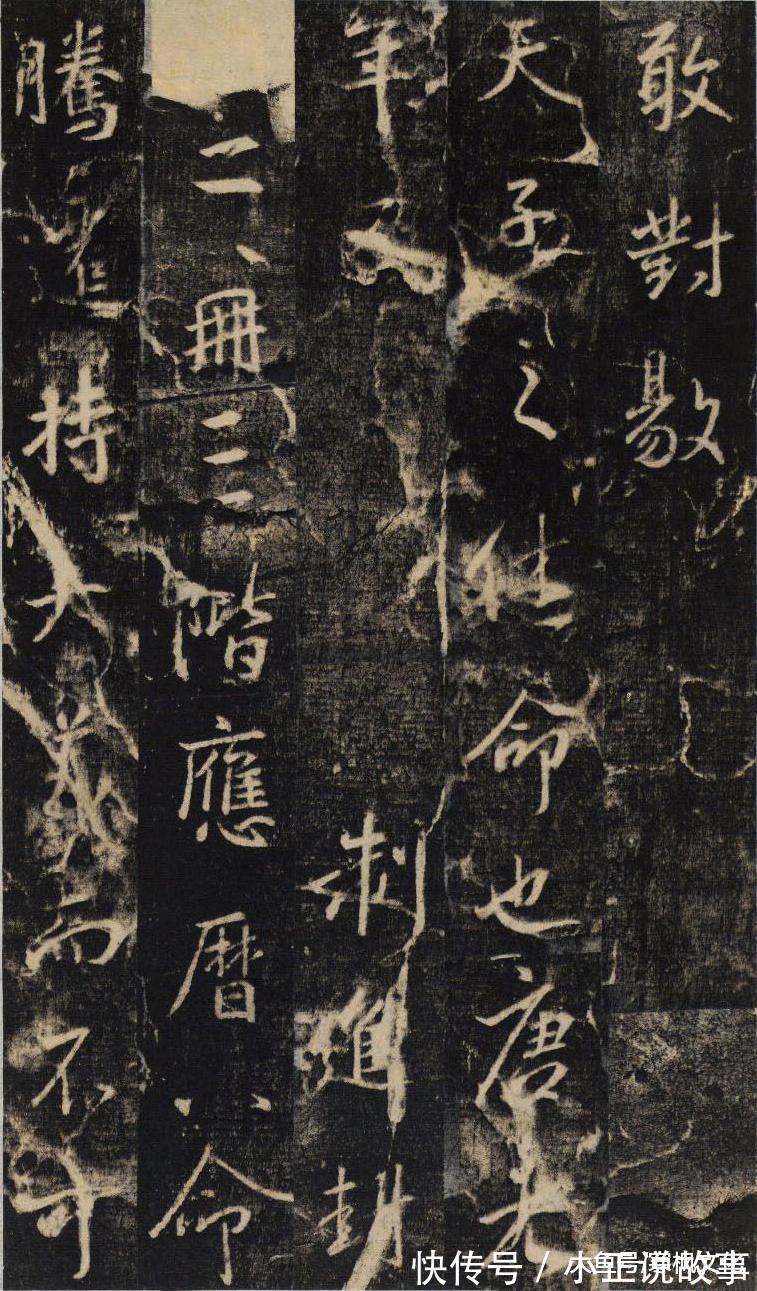 敢對敭
天子之休命也唐
年制進封
二冊三階應曆八命
騰持大義而不
快传号 / 小正说故事